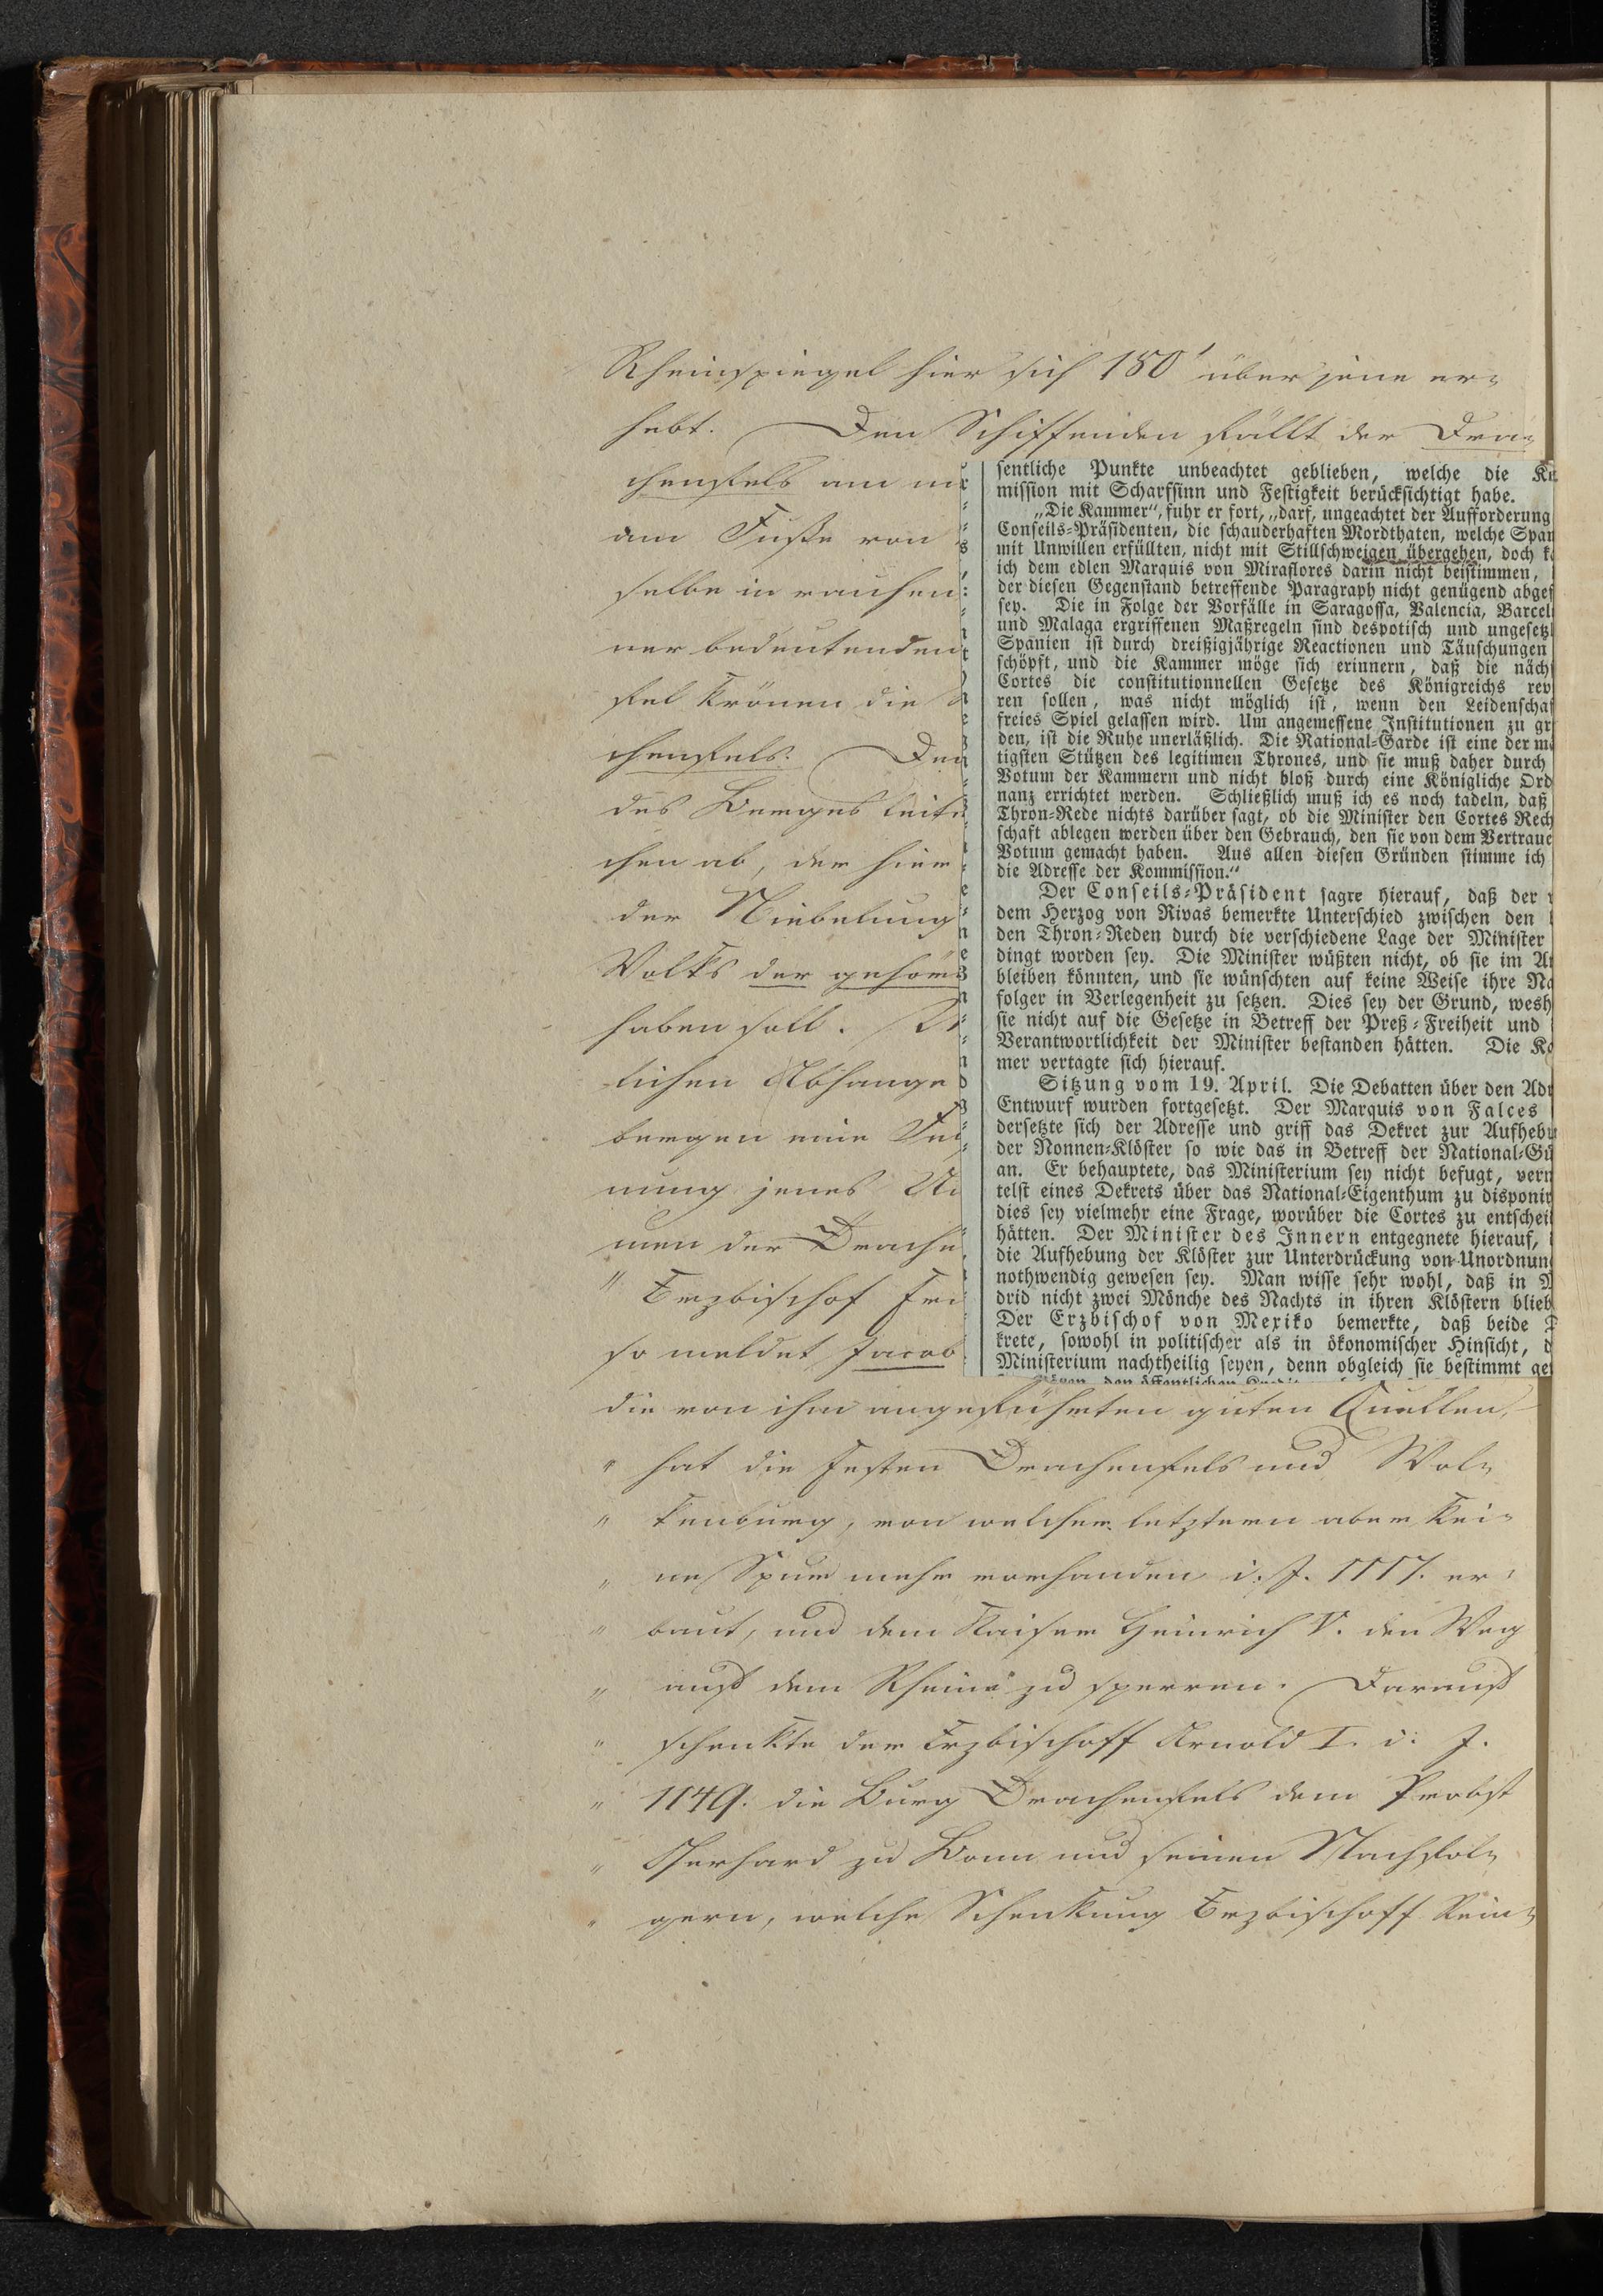 Rheinspiegel hier sich 180' über jene er-
hebt. Den Schiffenden fällt der Dra-
chenfels am
am Fuße von
selbe in rauhen
ner bedeutenden
fel krönen die
chenfels.
des Berges
chen ab, der hier
der Niebelung
Volks der
haben soll.
lichen Abhange
bergen eine
nung jenes
men der
" Erzbischof
so meldet Jacob
die von ihm angeführten guten Quellen,
" hat die Festen Drachenfels und Wol-
" kenburg, von welcher letztern aber kei-
" ne Spur mehr vorhanden i. J. 1117. er-
" baut, und dem Kaiser Heinrich V. den Weg
" auf dem Rheine zu sperren. Darauf
" schenkte der Erzbischoff Arnold I. i. J.
" 1149. die Burg Drachenfels dem Probst
" Gerhard zu Bonn und seinen Nachfol-
" gern, welche Schenkung Erzbischoff Rein-
sentliche Punkte unbeachtet geblieben, welche die
mission mit Scharfsinn und Festigkeit berücksichtigt habe.
„Die Kammer“, fuhr er fort, „darf, ungeachtet der Aufforderung
Conseils-Präsidenten, die schauderhaften Mordthaten, welche Span
mit Unwillen erfüllten, nicht mit Stillschweigen übergehen, doch
ich dem edlen Marquis von Miraflores darin nicht beistimmen,
der diesen Gegenstand betreffende Paragraph nicht genügend abgef
sey. Die in Folge der Vorfälle in Saragossa, Valencia, Barcel
und Malaga ergriffenen Maßregeln sind despotisch und ungesetzl
Spanien ist durch dreißigjährige Reactionen und Täuschungen
schöpft, und die Kammer möge sich erinnern, daß die näch
Cortes die constitutionnellen Gesetze des Königreichs rev
ren sollen, was nicht möglich ist, wenn den Leidenschaf
freies Spiel gelassen wird. Um angemessene Institutionen zu gr
den, ist die Ruhe unerläßlich. Die National-Garde ist eine der
tigsten Stützen des legitimen Thrones, und sie muß daher durch
Votum der Kammern und nicht bloß durch eine Königliche Ord
nanz errichtet werden. Schließlich muß ich es noch tadeln, daß
Thron-Rede nichts darüber sagt, ob die Minister den Cortes Rech
schaft ablegen werden über den Gebrauch, den sie von dem Vertraue
Votum gemacht haben. Aus allen diesen Gründen stimme ich
die Adresse der Kommission.“
Der Conseils-Präsident sagte hierauf, daß der
dem Herzog von Rivas bemerkte Unterschied zwischen den
den Thron-Reden durch die verschiedene Lage der Minister
dingt worden sey. Die Minister wüßten nicht, ob sie im
bleiben könnten, und sie wünschten auf keine Weise ihre
folger in Verlegenheit zu setzen. Dies sey der Grund, wesh
sie nicht auf die Gesetze in Betreff der Preß-Freiheit und
Verantwortlichkeit der Minister bestanden hätten. Die
mer vertagte sich hierauf.
Sitzung vom 19. April. Die Debatten über den Adr
Entwurf wurden fortgesetzt. Der Marquis von Falces
dersetzte sich der Adresse und griff das Dekret zur Aufheb
der Nonnen-Klöster so wie das in Betreff der National-Gü
an. Er behauptete, das Ministerium sey nicht befugt, verm
telst eines Dekrets über das National-Eigenthum zu disponir
dies sey vielmehr eine Frage, worüber die Cortes zu entschei
hätten. Der Minister des Innern entgegnete hierauf,
die Aufhebung der Klöster zur Unterdrückung von Unordnun
nothwendig gewesen sey. Man wisse sehr wohl, daß in
drid nicht zwei Mönche des Nachts in ihren Klöstern blieb
Der Erzbischof von Mexiko bemerkte, daß beide
krete, sowohl in politischer als in ökonomischer Hinsicht,
Ministerium nachtheilig seyen, denn obgleich sie bestimmt ge